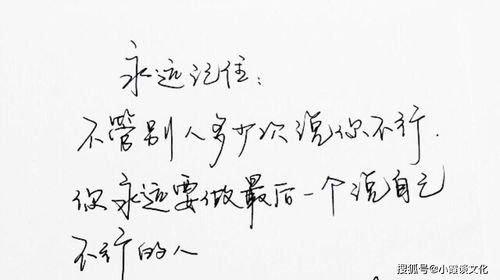 永远记住：
不管别人多少次说你不行．
你永远要做最后一个说自己
不行的人
搜狐号@小霞演文化